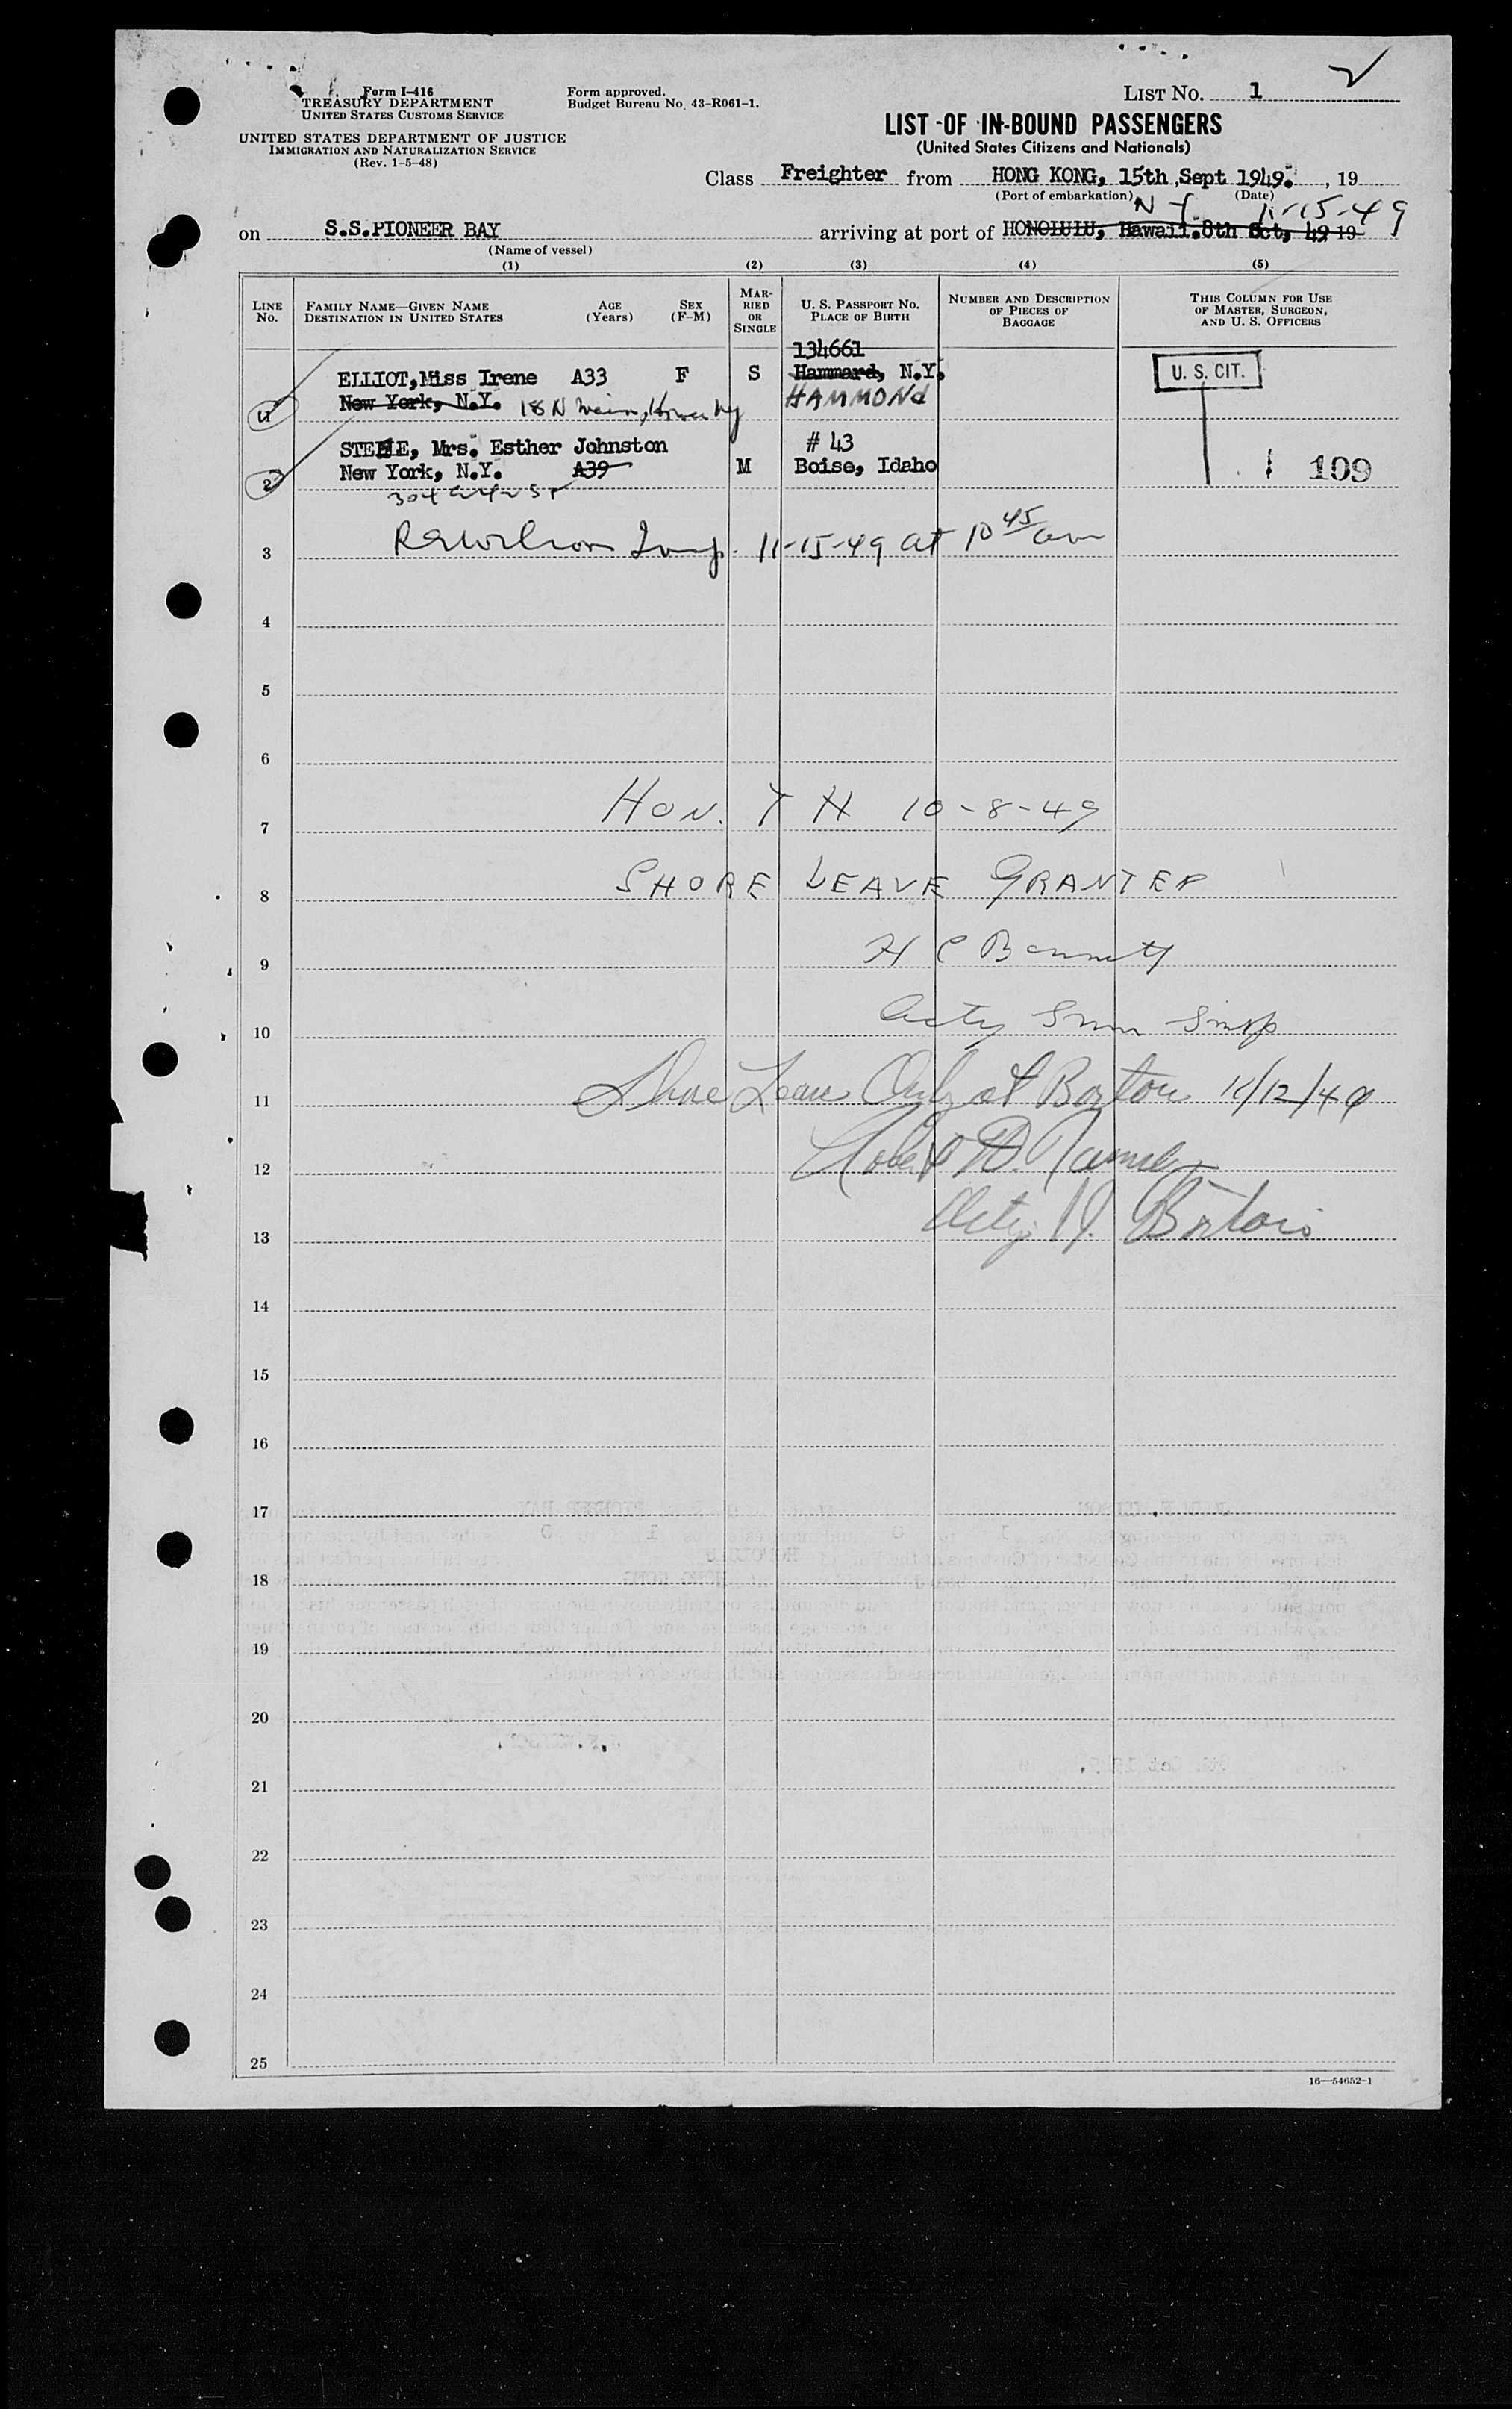 Form I-416
TREASURY DEPARTMENT
UNITED STATES CUSTOMS SERVICE
UNITED STATES DEPARTMENT OF JUSTICE
IMMIGRATION AND NATURALIZATION SERVICE
(Rev. 1-5-48)
Form approved.
Budget Bureau No. 43-R061-1.
LIST No. 1
LIST OF IN-BOUND PASSENGERS
(United States Citizens and Nationals)
Class Freighter from HONG KONG, 15th, Sept 1949. , 19
(Port of embarkation) (Date)
N Y. 11-15-49
on S.S.PIONEER BAY arriving at port of HONOLULU, Hawaii. 8th Oct, 49 19
(Name of vessel)
(1) (2) (3) (4) (5)
LINE No.
FAMILY NAME—GIVEN NAME DESTINATION IN UNITED STATES
AGE (Years)
SEX (F-M)
MARRIED OR SINGLE
U. S. PASSPORT NO. PLACE OF BIRTH
NUMBER AND DESCRIPTION OF PIECES OF BAGGAGE
THIS COLUMN FOR USE OF MASTER, SURGEON, AND U. S. OFFICERS
134661
ELLIOT, Miss Irene A33 F S Hammard, N.Y. U. S. CIT.
New York, N.Y. 18 N Main, HAMMONd
STEELE, Mrs. Esther Johnston # 43
2 New York, N.Y. A39 M Boise, Idaho 109
304
3 11-15-49 at 10 45 am
4
5
6
7 HON. T H 10-8-49
8 SHORE LEAVE GRANTED
9 H C Bennett
10 Actg Imm Insp
11 Shore Leave Only at Boston 11/12/49
12 Robert D.
13 Actg Boston
14
15
16
17
18
19
20
21
22
23
24
25
16—54652-1